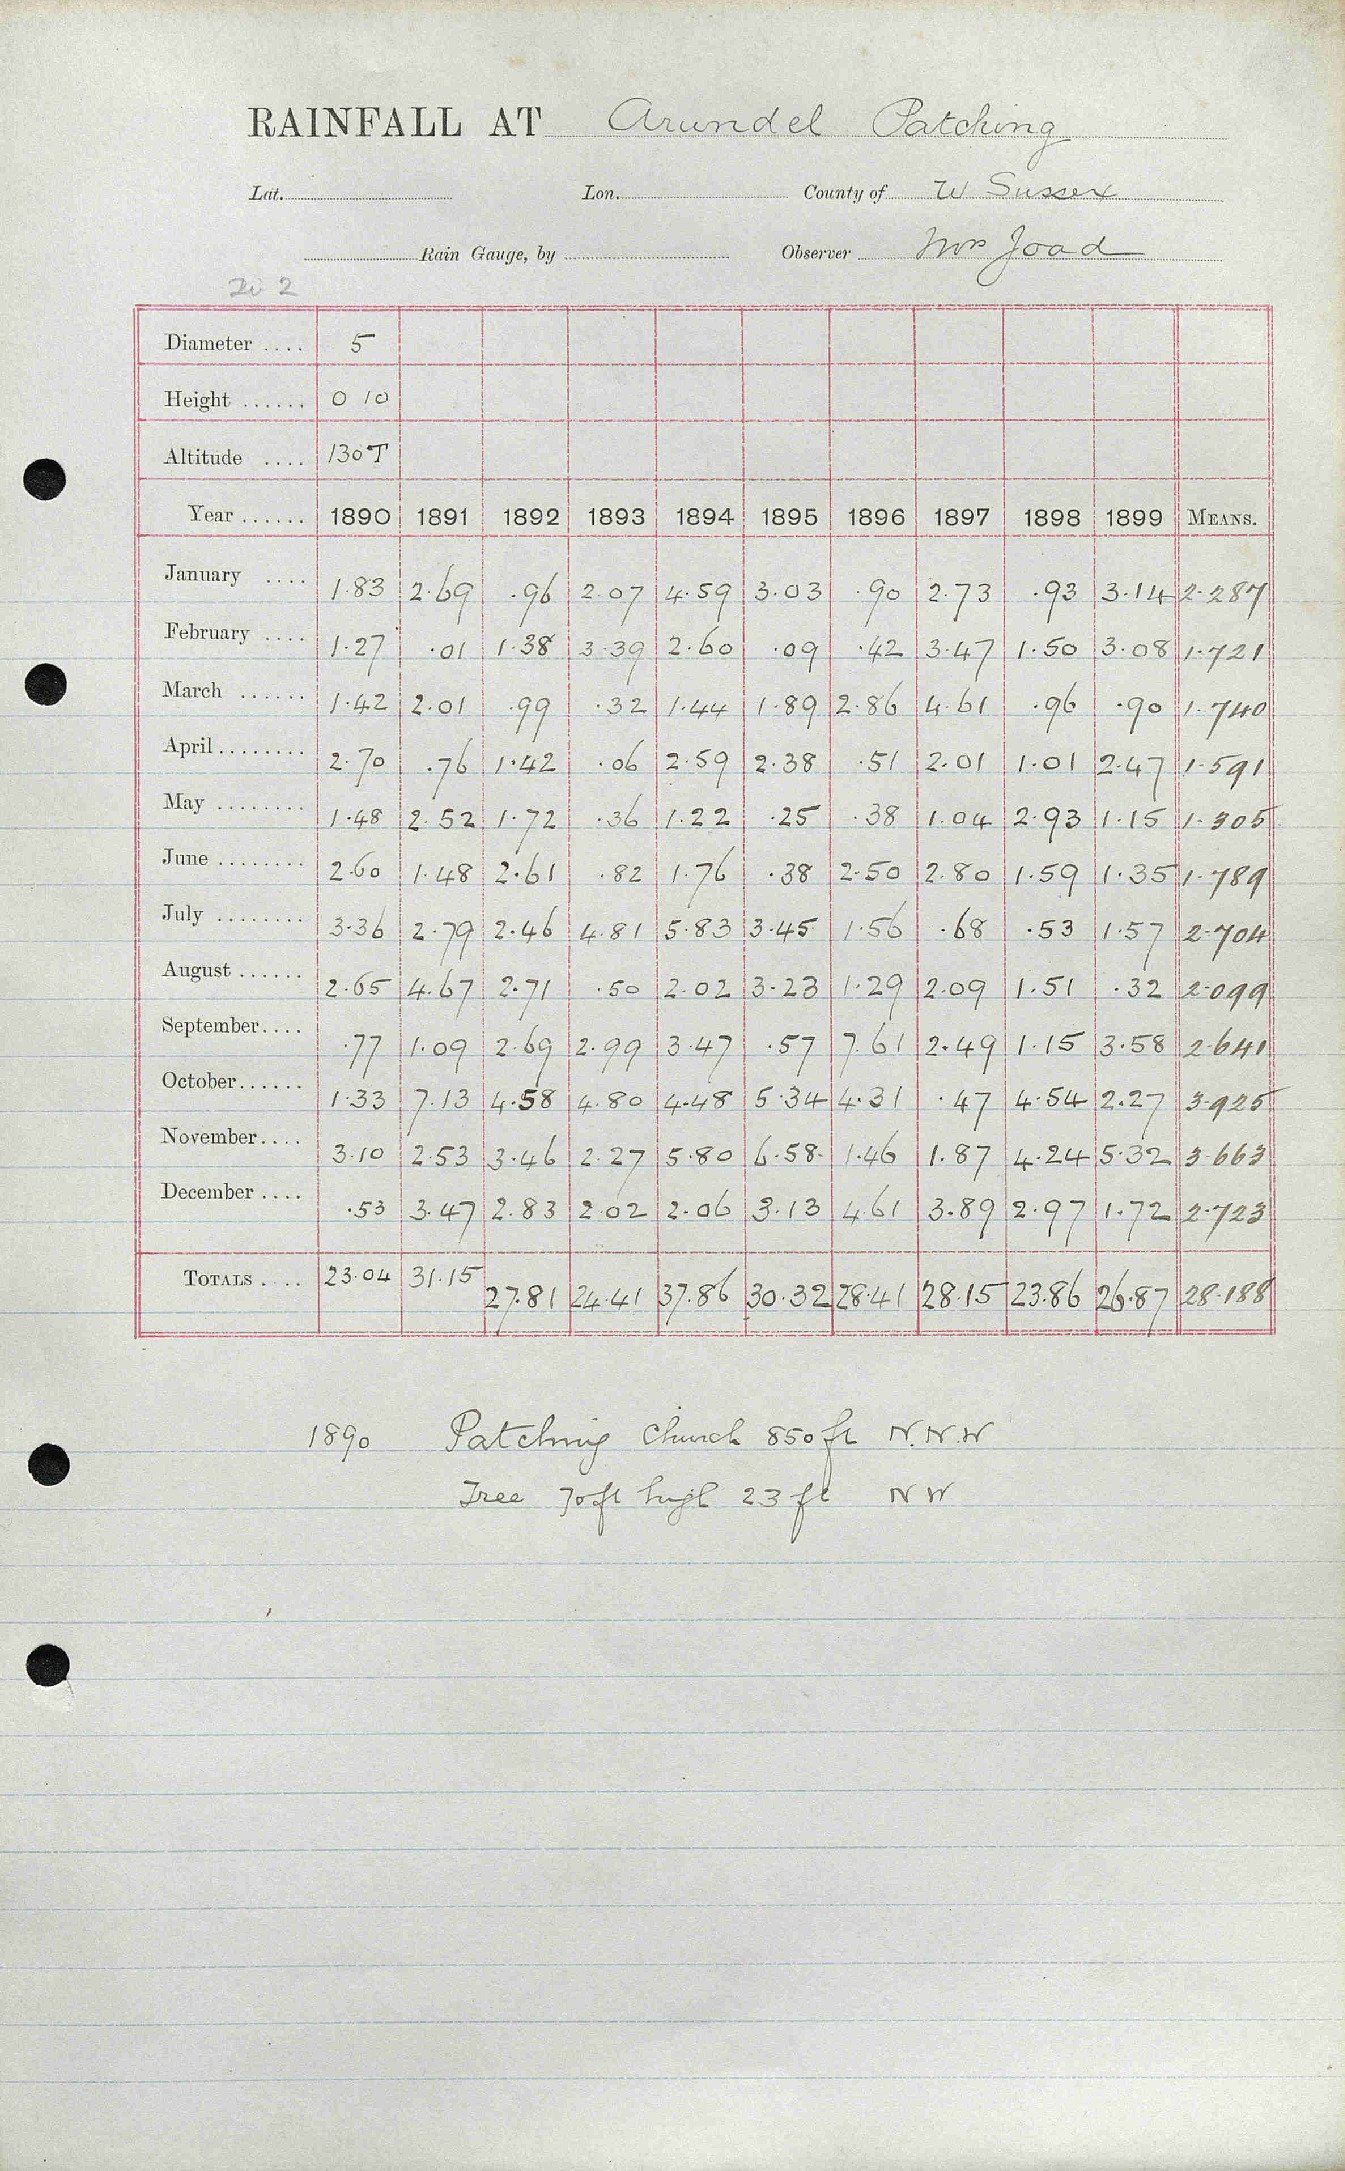 RAINFALL AT Arundel Patching
Lat. Lon. County of W Sussex
Rain Gauge, by Observer Mrs Joad
Diameter .... 5
Height ...... 0 10
Altitude .... 130 T
Year ...... 1890 1891 1892 1893 1894 1895 1896 1897 1898 1899 MEANS.
January .... 1.83 2.69 .96 2.07 4.59 3.03 .90 2.73 .93 3.14 2.287
February .... 1.27 .01 1.38 3.39 2.60 .09 .42 3.47 1.50 3.08 1.721
March ...... 1.42 2.01 .99 .32 1.44 1.89 2.86 4.61 .96 .90 1.740
April ........ 2.70 .76 1.42 .06 2.59 2.38 .51 2.01 1.01 2.47 1.591
May ........ 1.48 2.52 1.72 .36 1.22 .25 .38 1.04 2.93 1.15 1.305
June ........ 2.60 1.48 2.61 .82 1.76 .38 2.50 2.80 1.59 1.35 1.789
July ........ 3.36 2.79 2.46 4.81 5.83 3.45 1.56 .68 .53 1.57 2.704
August ...... 2.65 4.67 2.71 .50 2.02 3.23 1.29 2.09 1.51 .32 2.099
September .... .77 1.09 2.69 2.99 3.47 .57 7.61 2.49 1.15 3.58 2.641
October ...... 1.33 7.13 4.58 4.80 4.48 5.34 4.31 .47 4.54 2.27 3.925
November .... 3.10 2.53 3.46 2.27 5.80 6.58 1.46 1.87 4.24 5.32 3.663
December .... .53 3.47 2.83 2.02 2.06 3.13 4.61 3.89 2.97 1.72 2.723
TOTALS .... 23.04 31.15 27.81 24.41 37.86 30.32 28.41 28.15 23.86 26.87 28.188
1890 Patching Church 850 ft N.N.W
Tree 70ft high 23 ft N W